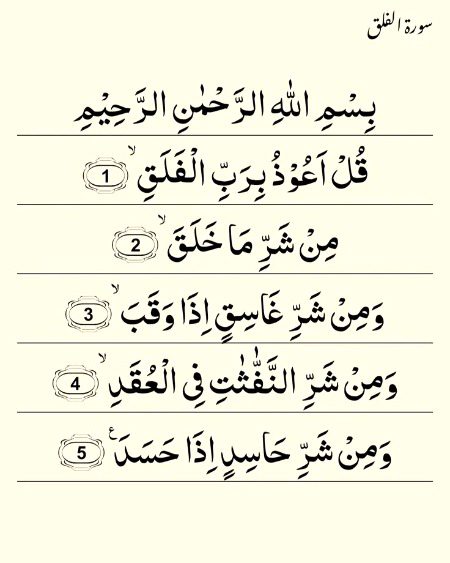 سورۃ الفلق
بِسْمِ اللّٰهِ الرَّحْمٰنِ الرَّحِيْمِ
قُلْ اَعُوْذُ بِرَبِّ الْفَلَقِۙ 1
مِنْ شَرِّ مَا خَلَقَۙ 2
وَمِنْ شَرِّ غَاسِقٍ اِذَا وَقَبَۙ 3
وَمِنْ شَرِّ النَّفّٰثٰتِ فِى الْعُقَدِۙ 4
وَمِنْ شَرِّ حَاسِدٍ اِذَا حَسَدَ ع 5